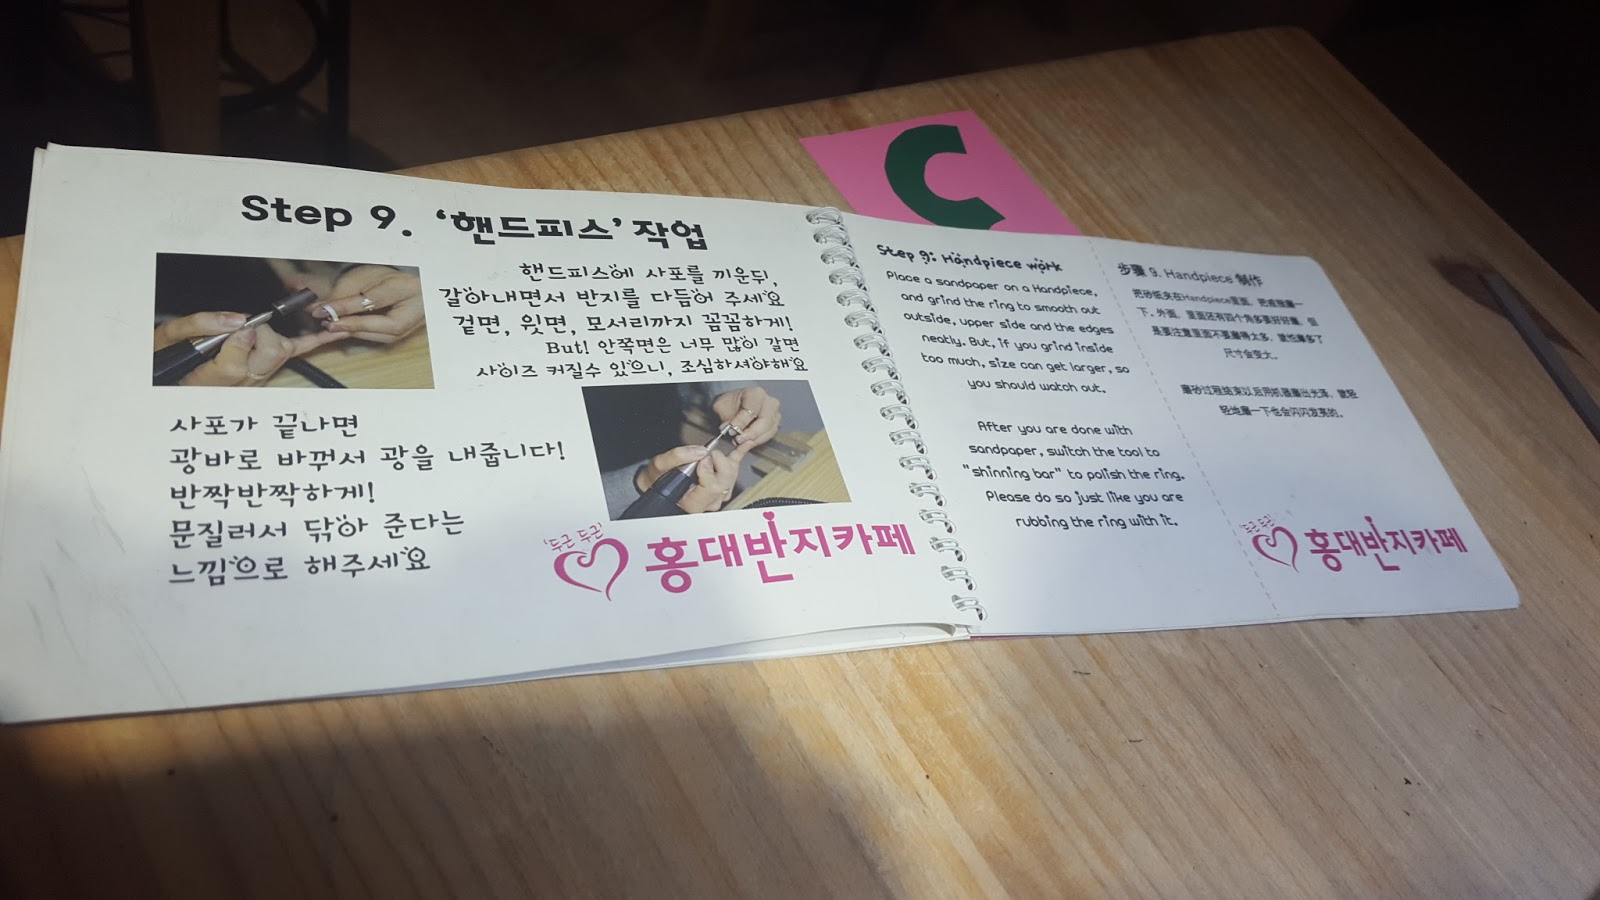 Step 9. ‘핸드피스’ 작업
핸드피스에 사포를 끼운뒤,
갈아내면서 반지를 다듬어 주세요
겉면, 윗면, 모서리까지 꼼꼼하게!
But! 안쪽면은 너무 많이 갈면
사이즈 커질수 있으니, 조심하셔야해요
사포가 끝나면
광바로 바꿔서 광을 내줍니다!
반짝반짝하게!
문질러서 닦아 준다는
느낌으로 해주세요
'두근 두근'
홍대반지카페
C
Step 9: Handpiece work
Place a sandpaper on a Handpiece,
and grind the ring to smooth out
outside, upper side and the edges
neatly. But, if you grind inside
too much, size can get larger, so
you should watch out.
After you are done with
sandpaper, switch the tool to
"shinning bar" to polish the ring.
Please do so just like you are
rubbing the ring with it.
步骤 9. Handpiece 制作
把砂纸夹在Handpiece里面，把戒指磨一
下。外面，里面还有四个角多要好好磨，但
是要注意里面不要磨得太多，
尺寸会变大。
磨砂过程结束以后用机器磨出光泽，就轻
轻地磨一下也会闪闪发亮的。
'두근 두근'
홍대반지카페